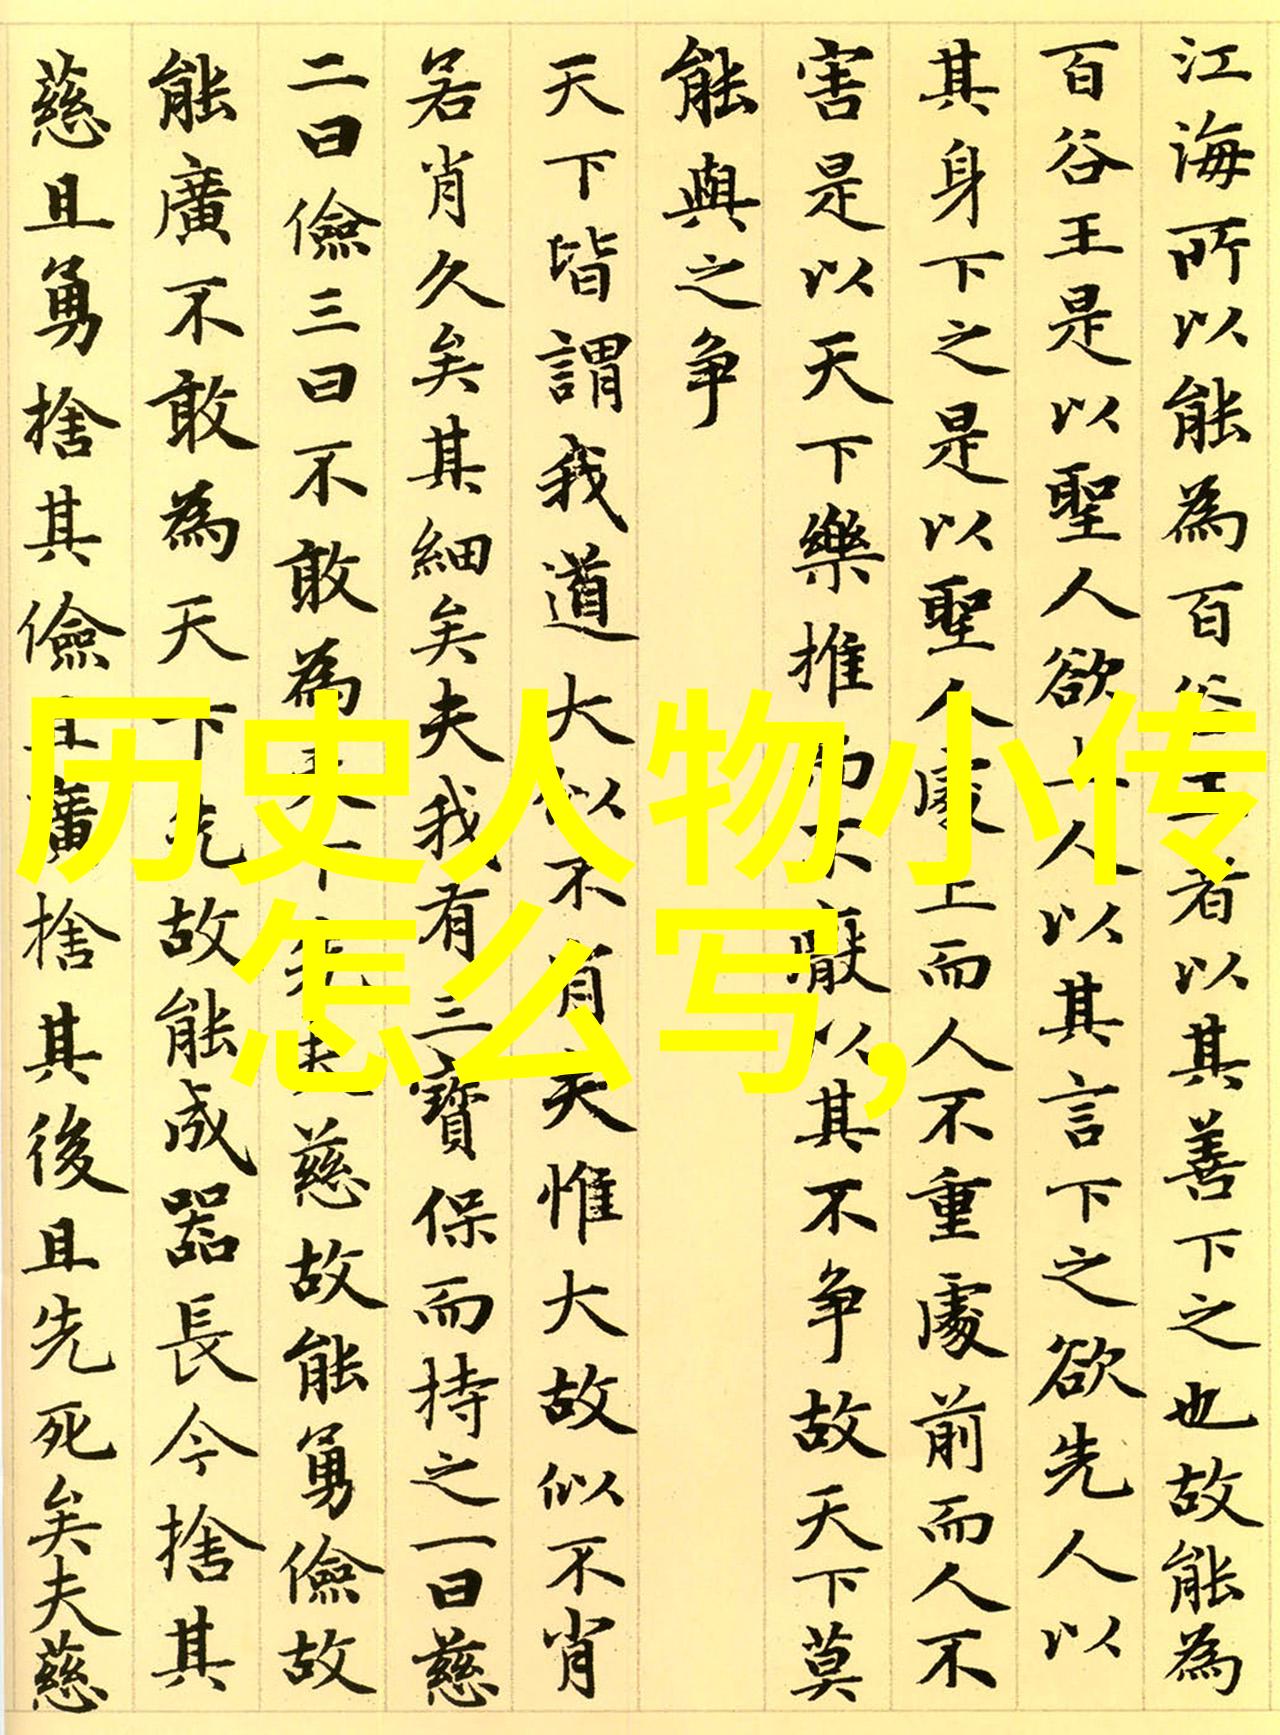 江海所以能為百谷王者以其善下之也故能為
百谷王是以聖人欲上人以其言下之欲先人以
其身下之是以聖人處上而人不重處前而人不
害是以天下樂推而不厭以其不争故天下莫
能與之争
天下皆謂我道大似不肖夫惟大故似不肖
若肖久矣其細矣夫我有三寶保而持之一曰慈
二曰儉三曰不敢為天下先夫慈故能勇儉故
能廣不敢為天下先故能成器長今捨其
慈且勇捨其儉且廣捨其後且先死矣夫慈
历史人物小传
怎么写,